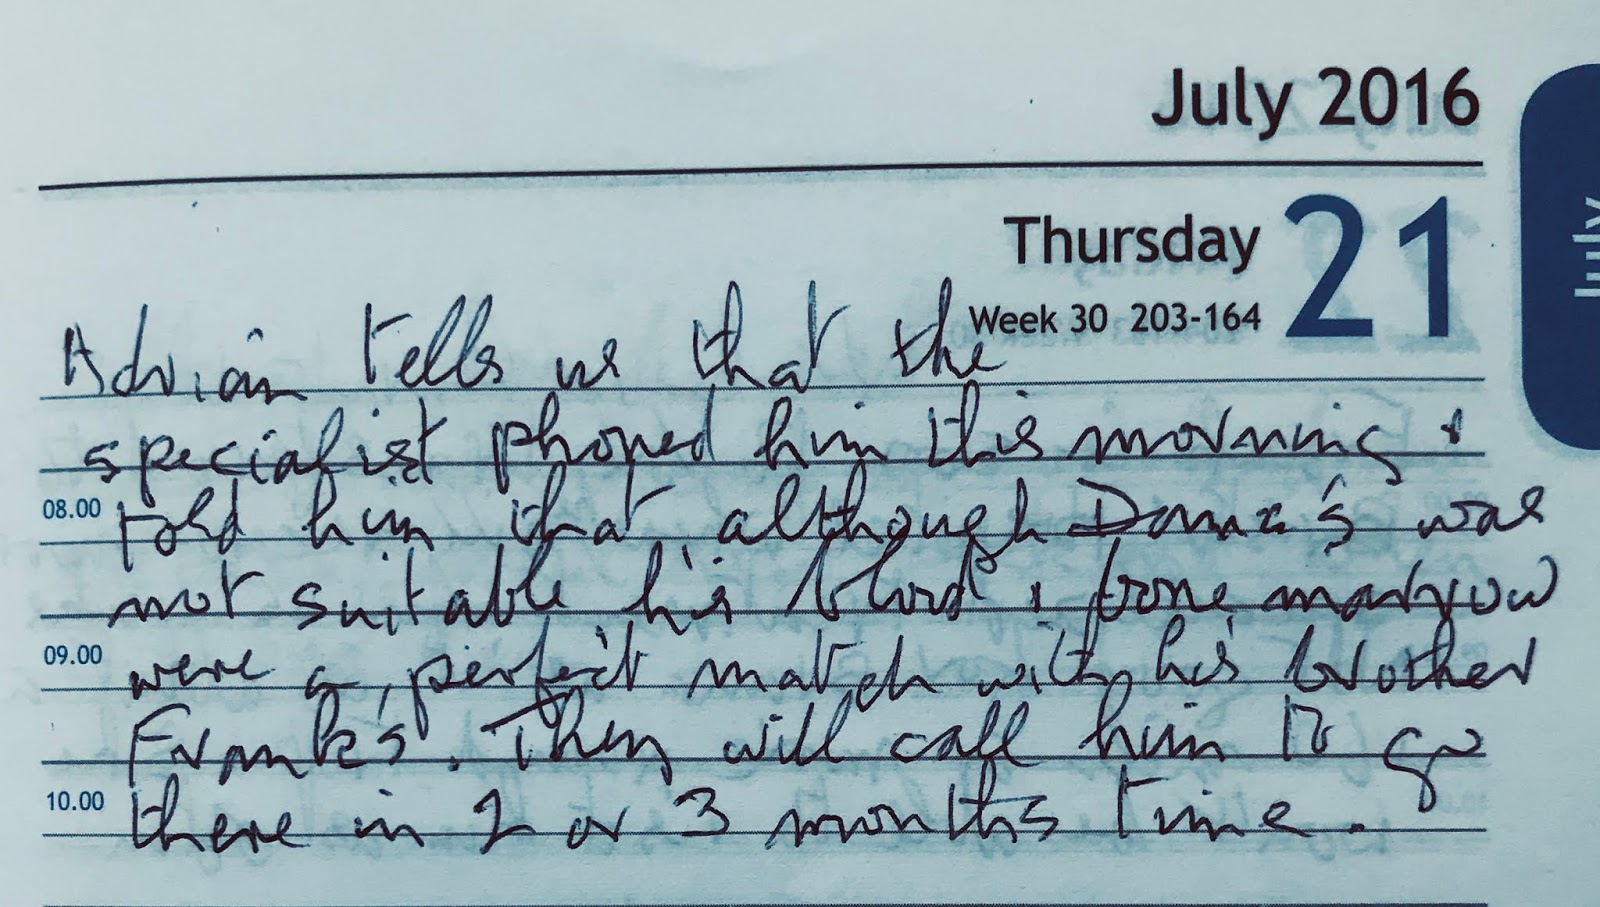 July 2016
Thursday 21
Week 30 203-164
July
Adrian tells us that the
specialist phoned him this morning &
08.00 told him that although Dama's was
not suitable his blood & bone marrow
09.00 were a perfect match with his brother
Frank's. They will call him to go
10.00 there in 2 or 3 months time.